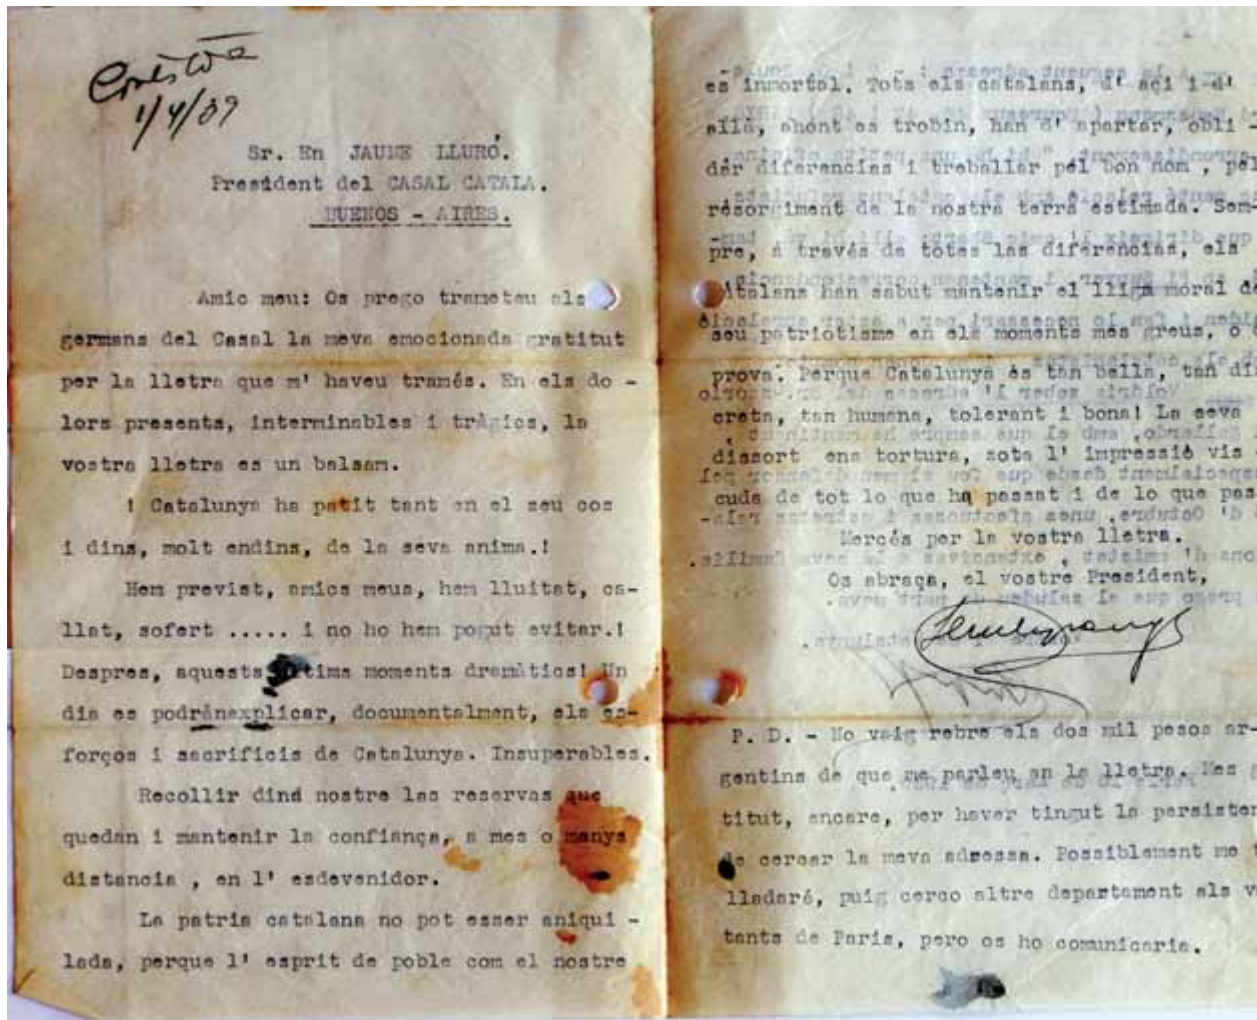 1/4/39
Sr. En JAUME LLURÓ.
President del CASAL CATALA.
BUENOS - AIRES.
Amic meu: Os prego trameteu els
germans del Casal la meva emocionada gratitut
per la lletra que m' haveu tramés. En els do -
lors presents, interminables i tràgics, la
vostra lletra es un balsam.
! Catalunya ha patit tant en el seu cos
i dins, molt endins, de la seva anima.!
Hem previst, amics meus, hem lluitat, ca-
llat, sofert ..... i no ho hem pogut evitar.!
Despres, aquests moments dramàtics! Un
dia es podránexplicar, documentalment, els es-
forços i sacrificis de Catalunya. Insuperables.
Recollir dind nostre las reservas que
quedan i mantenir la confiança, a mes o menys
distancia , en l' esdevenidor.
La patria catalana no pot esser aniqui -
lada, perque l' esprit de poble com el nostre
es inmortal. Tots els catalans, d' açi i d'
allà, ahont es trobin, han d' apartar, obli -
dar diferencias i treballar pél bon nom , pél
résorgiment de la nostra terra estimada. Sem-
pre, á través de totes las diferencias, els
catalans han sabut mantenir el lliga moral de
seu patriotisme en els moments mes greus, o
prova. Perque Catalunya és tan bella, tan dis
creta, tan humana, tolerant i bona! La seva
dissort ens tortura, sota l' impressió vis
cuda de tot lo que ha passat i de lo que pas
Mercés per la vostra lletra.
Os abraça, el vostre President,
P. D. - No vaig rebre els dos mil pesos ar-
gentins de que me parleu en la lletra. Mes
titut, encare, per haver tingut la persisten
de cercar la meva adressa. Possiblement me t
lladaré, puig cerco altre departament als v
tants de Paris, pero os ho comunicaria.